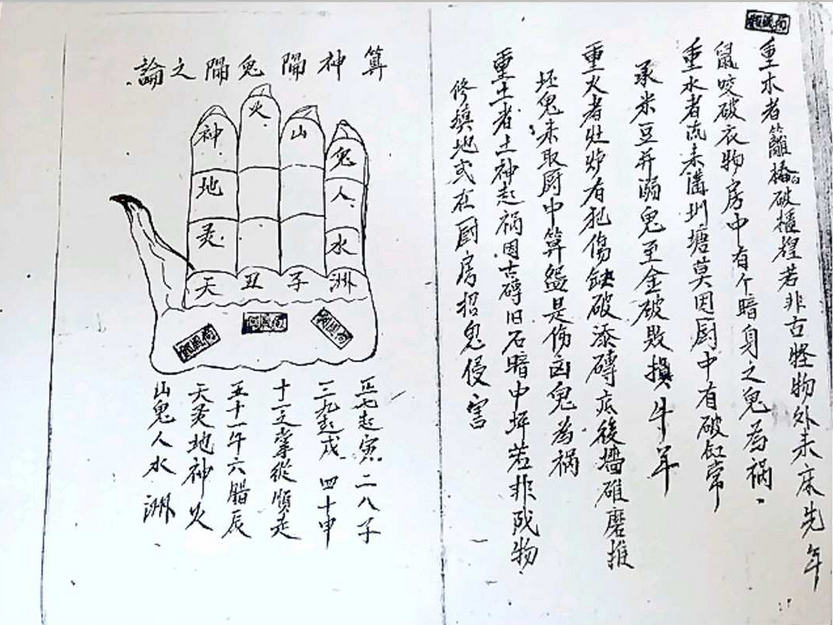 重木者籬樁破櫃程若非古怪物外來底先年
鼠咬破衣物房中有个暗身之鬼為禍
重水者流未溝圳塘莫因厨中有破缸常
承米豆并溺鬼至金破毀損牛羊
重火者灶炉有犯傷缺破添磚底後墻碓磨推
坯鬼未取厨中算盤是伤凶鬼為祸
重土者土神起禍因古磚旧石暗中坪若非戏物
修填地或在厨房招鬼侵害
算神隔鬼隔之論
神 火 山 鬼
地 人
灵 水
天 丑 子 洲
正七起寅 二八子
三九起戌 四十申
十二支掌從順走
五十一午六腊辰
天灵地神火
山鬼人水洲